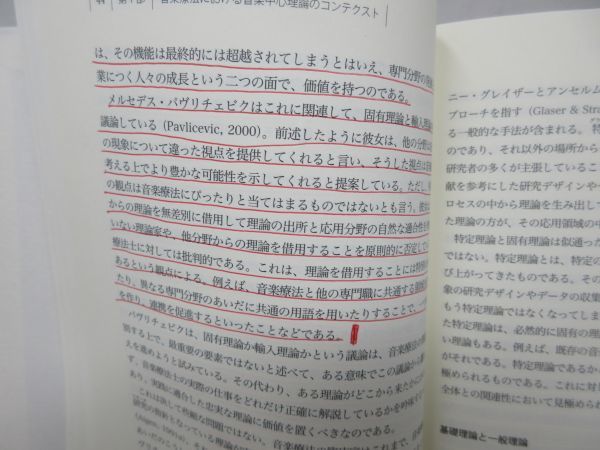 第1部 音楽療法における音楽中心理論のコンテクスト
は、その機能は最終的には超越されてしまうとはいえ、専門分野の発
業につく人々の成長という二つの面で、価値を持つのである。
メルセデス・パヴリチェビクはこれに関連して、固有理論と輸入理論
議論している (Pavlicevic, 2000)。前述したように彼女は、他の分野は
の現象について違った視点を提供してくれると言い、そうした視点は
考える上でより豊かな可能性を示してくれると提案している。ただし、
の観点は音楽療法にぴったりと当てはまるものではないとも言う。彼女は
からの理論を無差別に借用して理論の出所と応用分野の自然な適合性を
いない理論家や、他分野からの理論を借用することを原則的に否定して
療法士に対しては批判的である。これは、理論を借用することには
あるという観点による。例えば、音楽療法と他の専門職に共通する
たり、異なる専門分野のあいだに共通の用語を用いたりすることで、
を作り、連携を促進するといったことなどである。
パヴリチェビクは、固有理論か輸入理論かという議論は、音楽療法の
する上で、最重要の要素ではないと述べて、ある意味でこの議論から
えを進めようと試みている。その代わり、ある理論がどこから来たかに
ず、音楽療法士の実際の仕事をどれだけ正確に解説しているかを吟味
あり、実践に適合した忠実な理論に価値を置くべきなのである。
これは決して些細な問題ではない。音楽療法の
的指針となっている理論が
(Aigen, 1991a)、それは
ニー・グレイザーとアンセルム
プローチを指す (Glaser & Stra
る一般的な手法が含まれる。特
のであり、それ以外の場所から
研究者の多くが主張している
献を参考にした研究デザインや
ロセスの中から理論を生み出して
た理論の方が、その応用領域の中
特定理論と固有理論は似通った
ではない。特定理論とは、特定
び上がってきたものである。その
象の研究デザインやデータの収集
もう特定理論ではなくなってしま
た特定理論は、必然的に固有の理
い理論もある。例えば、既存の音
がそれである。特定理論であるか
極められるものである。これに対
全体との関連性において見極められ
基礎理論と一般理論